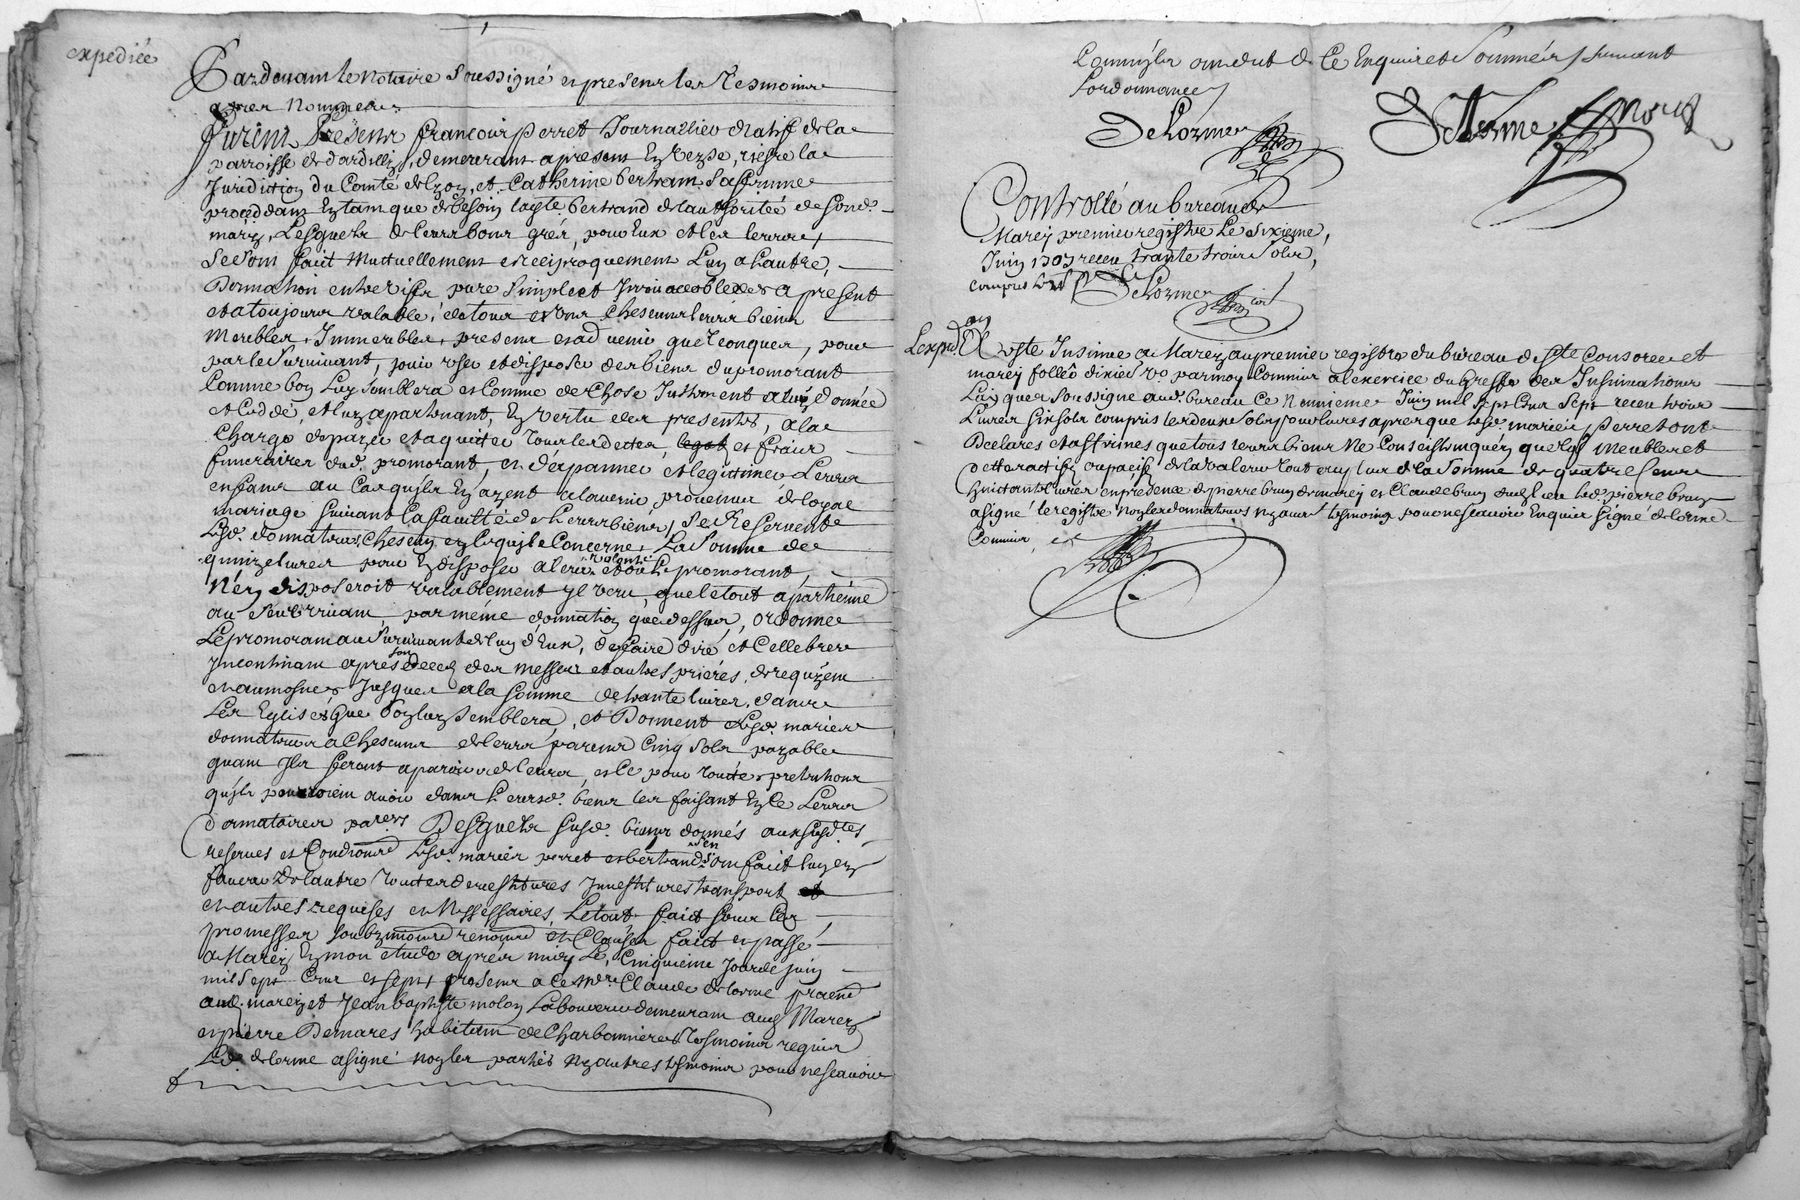 expediée
Pardevant le Notaire soussigné et presens les Tesmoins
apres Nommez
furent Presens françois perret Journallier natif de la
parroisse de dardilly, demeurant apresent En Veyse, riesre la
Juridiction du Comté de Lyon, et Catherine bertrand sa femme
proceddans En tant que de besoin lad.te bertrand de lauthoritée de sond.
mary, Lesquels de leurs bons grés, pour Eux et les leurs,
se sont faict Muttuellement et reciproquement Lun a Lautre,
Donnation entre vifs, pure simple et Irrevoccable des a present
et a toujours valable, de tous et uns chescuns leurs biens
Meubles, Immeubles, presens et advenir quelconques, pour
par le survivant, jouir user et disposer des biens du premorant
Comme bon Luy semblera et Comme de chose Justement a luy donnée
et Ceddé, et luy apartenant, En vertu des presentes, a la
charge de payer et aquitter tous les dettes, legat et fraix
funeraires dud. premorant, et d'apanner et legittimer Leurs
enfans au Cas quils En ayent a lavenir, provenus de loyal
mariage suivant la faculté de Leurs biens, se Reservent
Lesd. donnateurs, Chescun en ce qui le Concerne, La somme de
quinze livres pour En disposer a leur volonté et ou Le premorant,
N'en disposeroit valablement Il veut, que le tout apartienne
au survivant par même donnation que dessus, ordonne
Le premorant au survivant de lun d'Eux, de faire dire et Cellebrer
Incontinant apres son deceds des Messes et autres prieres, de requiem
et aumosnes Jusques a la somme de trante livres, dans
Les Eglises que bon luy semblera, et Donnent Lesd. mariés
donnateurs a Chescuns de leurs parens Cinq sols payable
quant Ils seront aparoir de leurs, et ce pour toutes pretentions
quils pourroient avoir dans Leursd. biens les faisant En ce Leurs
donnataires par.ers Desquels susd. biens donnés aux susd.tes
reserves et Conditions Lesd. mariés perret et bertrand s'en sont faict lun en
faveur de lautre toutes devestitures Investitures transport
et autres requises et Nessessaires, Le tout faict sous les
promesses soubzmissions renoncions et Clauses faict et passé
a Marcy En mon etude apres midy Le Cinquieme Jour de Juin
mil sept Cens et sept, presens a ce M.re Claude delorme praticien
aud. marcy et Jean baptiste molon Laboureur demeurant aud. Marcy
et pierre Demares habitant de Charbonnieres tesmoins requis
Led. delorme a signé non les parties Ny autres tesmoins pour ne scavoir
comm'ils ont dit de Ce Enquis et Sommés suivant
Lordonnance
Delorme
Delorme Not.re
Controllé au bureau de
Marcy premier registre Le sixieme,
Juin 1707 receu trante trois sols,
compris les
Delorme
Lexped.on a esté Insinué a Marcy au premier registre du bureau de s.te Consorce et
marcy follio dixies v.o par moy Commis a lexercice du Greffe des Insinuations
Laiques soussigne aud. bureau Ce Neuvieme Juin mil sept Cens sept receu trois
Livres six sols compris les deux sols pour livres apres que lesd. mariés perret ont
Declarés et affirmes que tous leurs biens Ne Consistent quen quelques Meubles et
le tout au plus de la somme de quatre Cents
huictante livres en presence de pierre brun de marcy et Claude brun dud. lieu led. pierre brun
a signé le registre non les donnateurs ny autre tesmoing pour ne scavoir Enquis signé delorme
Commis